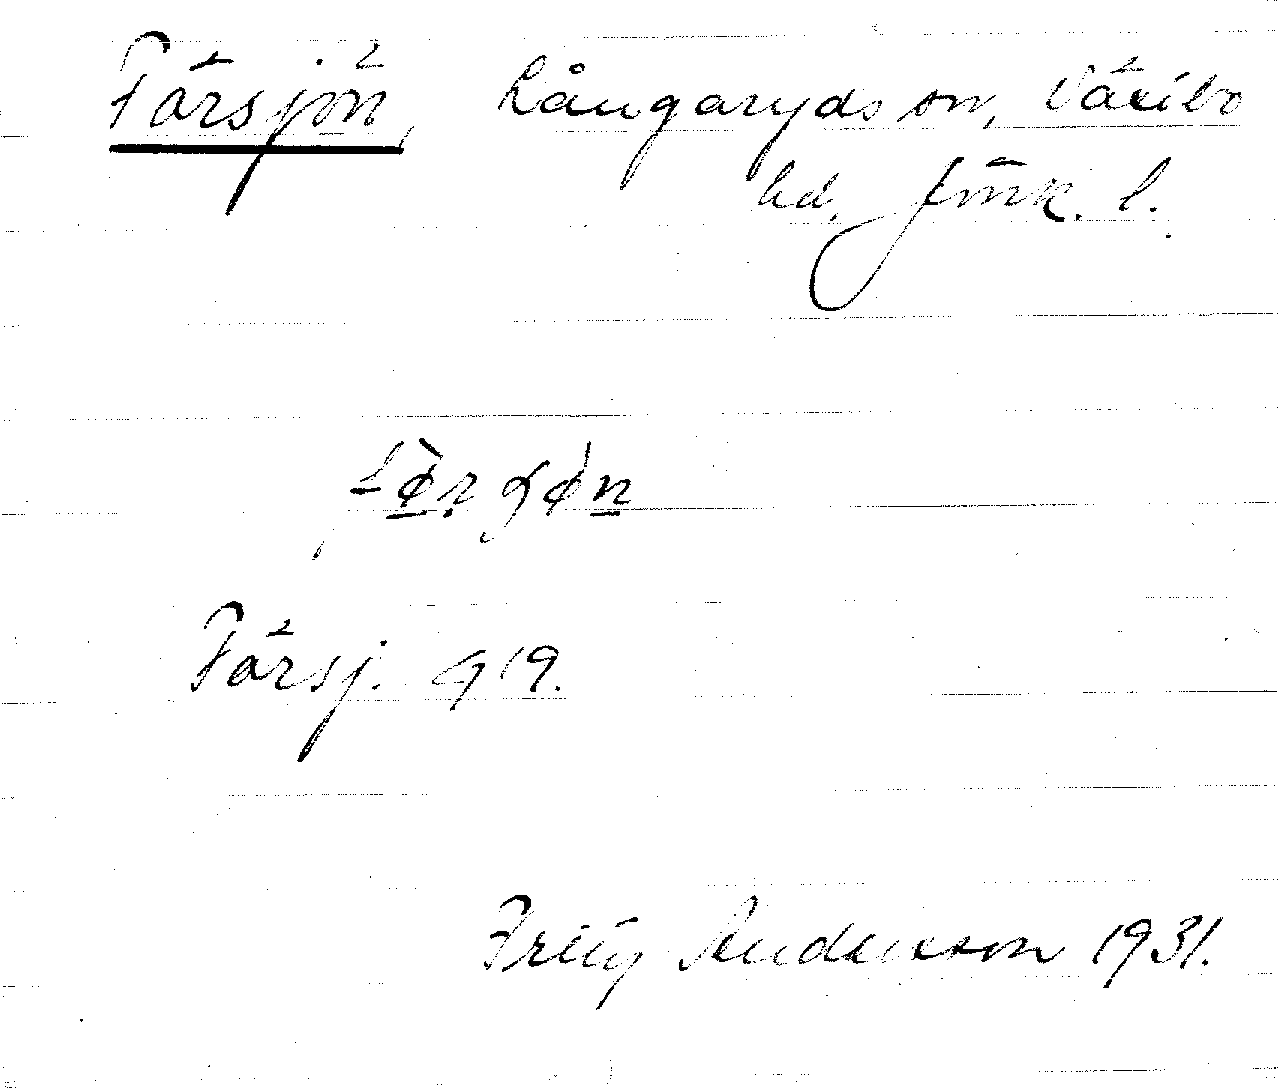 Färsjön, Långaryds sn, Västbo
hd, Jönk. l.
Färsj. G 19.
Fritz Andersson 1931.